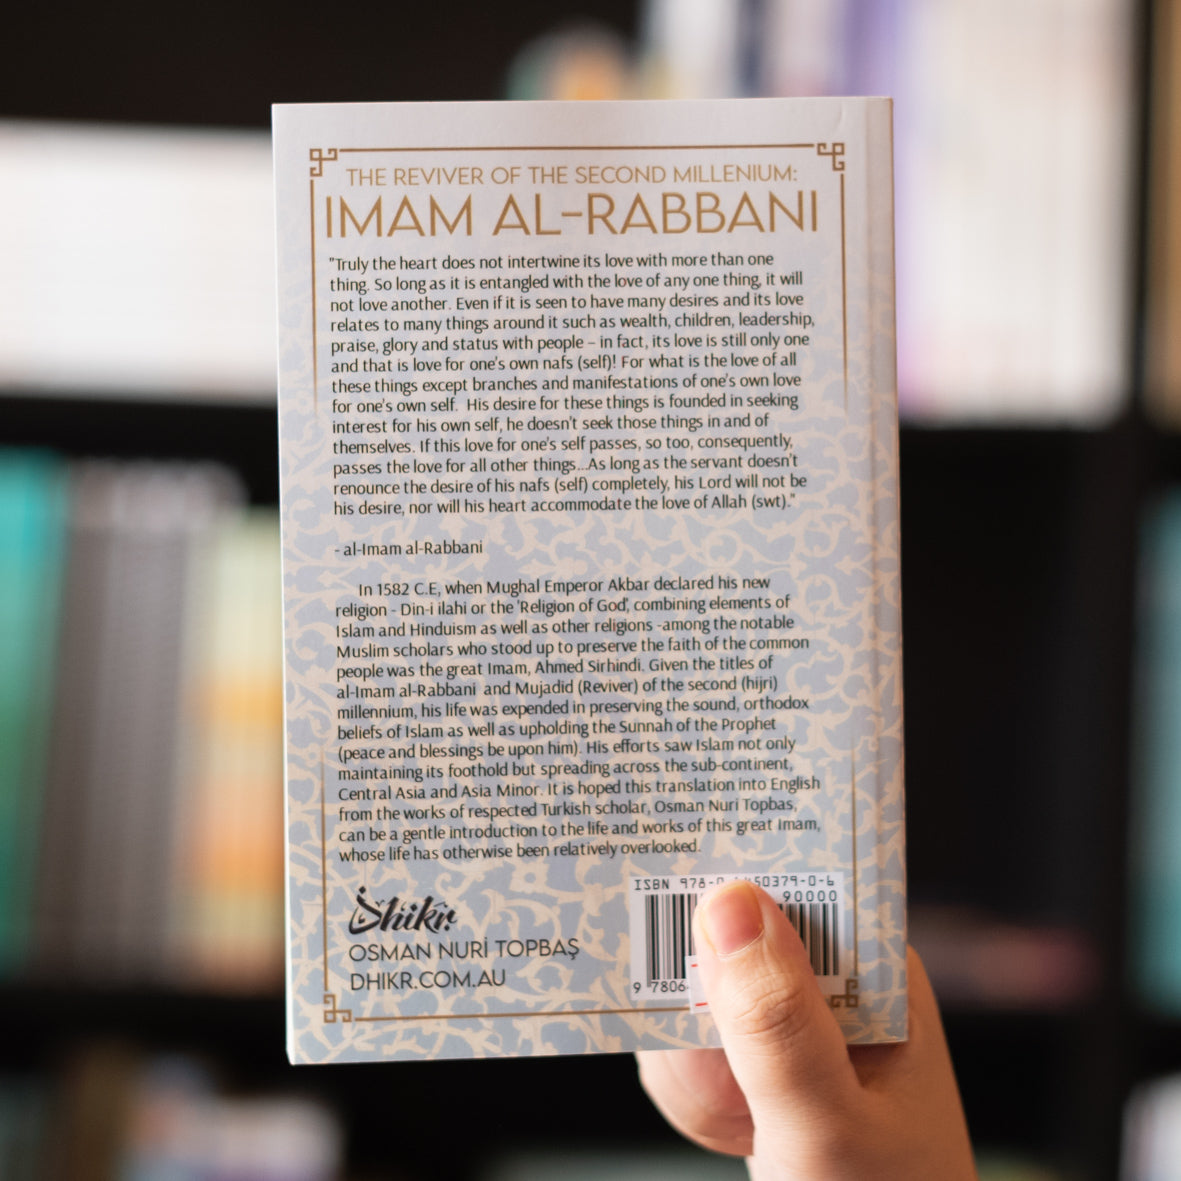 THE REVIVER OF THE SECOND MILLENIUM:
IMAM AL-RABBANI
"Truly the heart does not intertwine its love with more than one
thing. So long as it is entangled with the love of any one thing, it will
not love another. Even if it is seen to have many desires and its love
relates to many things around it such as wealth, children, leadership,
praise, glory and status with people – in fact, its love is still only one
and that is love for one's own nafs (self)! For what is the love of all
these things except branches and manifestations of one's own love
for one's own self. His desire for these things is founded in seeking
interest for his own self, he doesn't seek those things in and of
themselves. If this love for one's self passes, so too, consequently,
passes the love for all other things...As long as the servant doesn't
renounce the desire of his nafs (self) completely, his Lord will not be
his desire, nor will his heart accommodate the love of Allah (swt)."
- al-Imam al-Rabbani
In 1582 C.E, when Mughal Emperor Akbar declared his new
religion - Din-i ilahi or the 'Religion of God', combining elements of
Islam and Hinduism as well as other religions -among the notable
Muslim scholars who stood up to preserve the faith of the common
people was the great Imam, Ahmed Sirhindi. Given the titles of
al-Imam al-Rabbani and Mujadid (Reviver) of the second (hijri)
millennium, his life was expended in preserving the sound, orthodox
beliefs of Islam as well as upholding the Sunnah of the Prophet
(peace and blessings be upon him). His efforts saw Islam not only
maintaining its foothold but spreading across the sub-continent,
Central Asia and Asia Minor. It is hoped this translation into English
from the works of respected Turkish scholar, Osman Nuri Topbas,
can be a gentle introduction to the life and works of this great Imam,
whose life has otherwise been relatively overlooked.
ISBN 978-0 50379-0-6
90000
Dhikr
OSMAN NURİ TOPBAŞ
DHIKR.COM.AU
9 7806